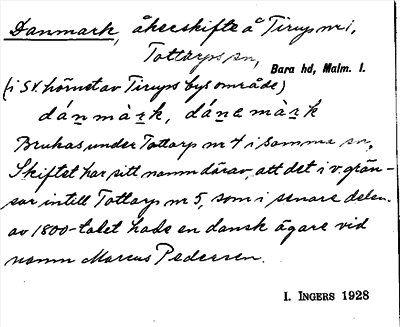 Danmark, åkerskifte å Tirups nr 1,
Tottarps sn,
Bara hd, Malm. l.
(i SV. hörnet av Tirups bys område)
dánmàrk, dánemàrk
Brukas under Tottarp nr 4 i samma sn.
Skiftet har sitt namn därav, att det i v. grän-
sar intill Tottarp nr 5, som i senare delen
av 1800-talet hade en dansk ägare vid
namn Marcus Pedersen.
I. INGERS 1928